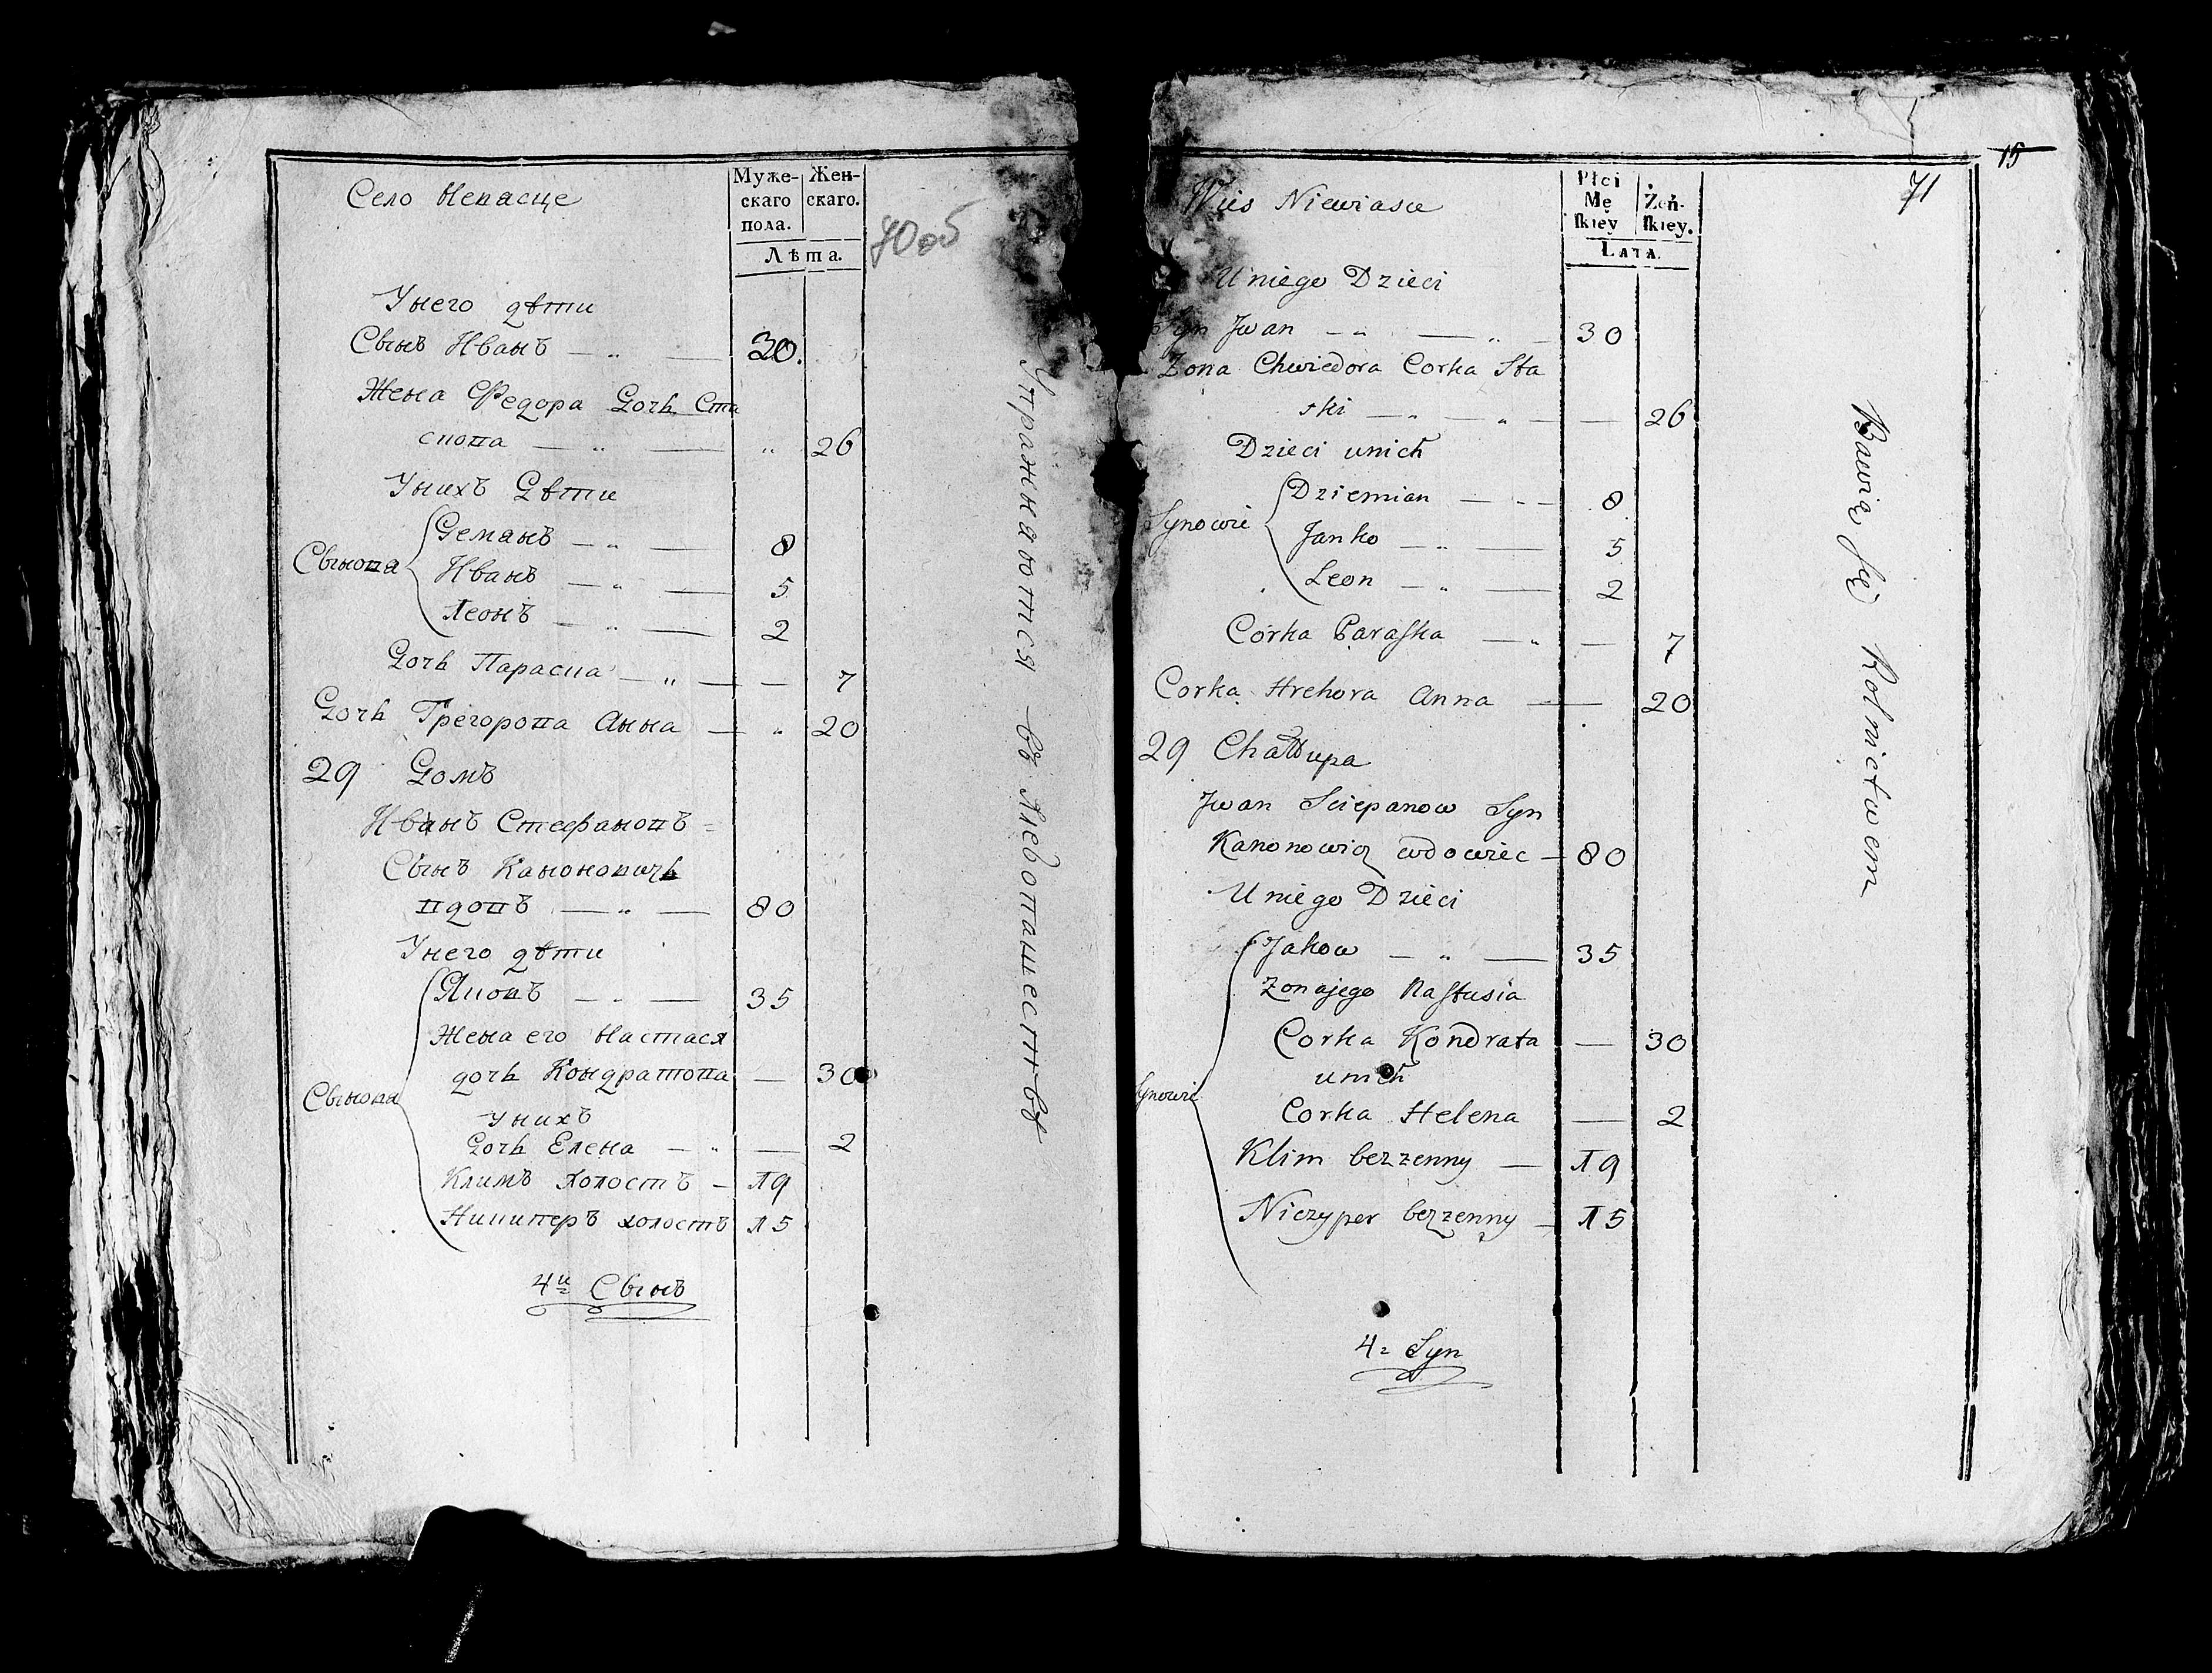 Село Невясце
Муже-
скаго
пола.
Жен-
скаго.
Лѣта.
70об
Унего дѣти
Сынъ Иванъ — „ — 30.
Жена Федора Дочь Ста
скова — „ — „ 26
Унихъ Дѣти
Сынова
Деманъ — „ — 8
Иванъ — „ — 5
Леонъ — „ — 2
Дочь Параска — „ — — 7
Дочь Грегорова Анна — „ 20
29 Домъ
Иванъ Стефановъ
Сынъ Каноновичь
вдовъ — „ — 80
Унего дѣти
Сынова
Яковъ — „ — 35
Жена его Настася
дочь Кондратова — 30
Унихъ
Дочь Елена — „ — 2
Климъ холостъ — 19
Никиперъ холостъ 15
4й Сынъ
Упражняются въ Хлебопашествѣ
15
71
Wies Niewiasce
Płci
Mę
ſkiey
Żeń-
ſkiey.
Lata.
Uniego Dzieci
Syn Jwan — „ — „ — 30
Zona Chwiedora Corka Sta
ski — „ — „ — — 26
Dzieci unich
Synowie
Dziemian — „ — 8
Janko — „ — 5
Leon — „ — 2
Córka Paraſka — „ — 7
Corka Hrehora Anna — — 20
29 Chałłupa
Jwan Sciepanow Syn
Kanonowicz wdowiec — 80
Uniego Dzieci
Synowie
Jakow — „ — 35
Zonajego Naſtusia
Corka Kondrata — 30
unich
Corka Helena — 2
Klim bezzenny — 19
Niczyper bezzenny — 15
4: Syn
Bawią ſię Rolnictwem